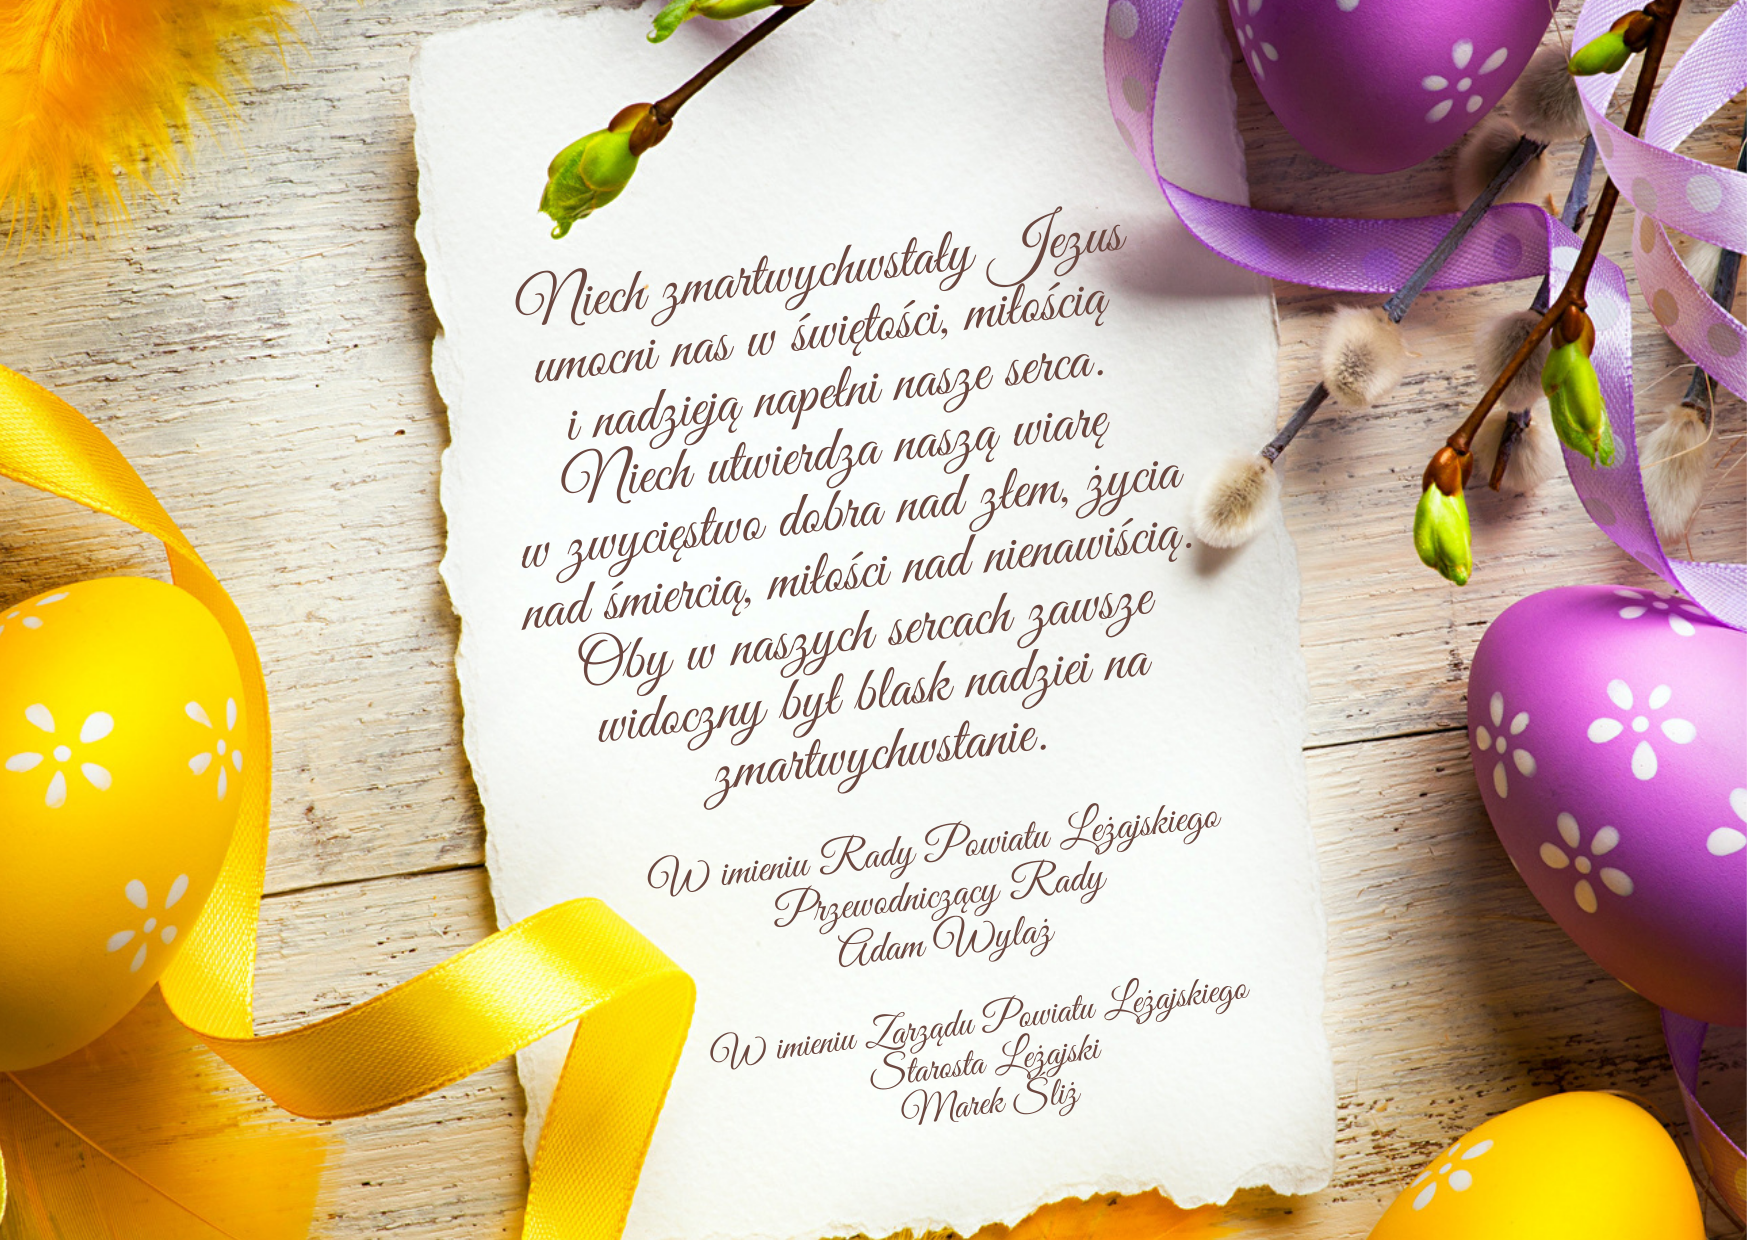 Niech zmartwychwstały Jezus
umocni nas w świętości, miłością
i nadzieją napełni nasze serca.
Niech utwierdza naszą wiarę
w zwycięstwo dobra nad złem, życia
nad śmiercią, miłości nad nienawiścią.
Oby w naszych sercach zawsze
widoczny był blask nadziei na
zmartwychwstanie.
W imieniu Rady Powiatu Leżajskiego
Przewodniczący Rady
Adam Wylaż
W imieniu Zarządu Powiatu Leżajskiego
Starosta Leżajski
Marek Śliż